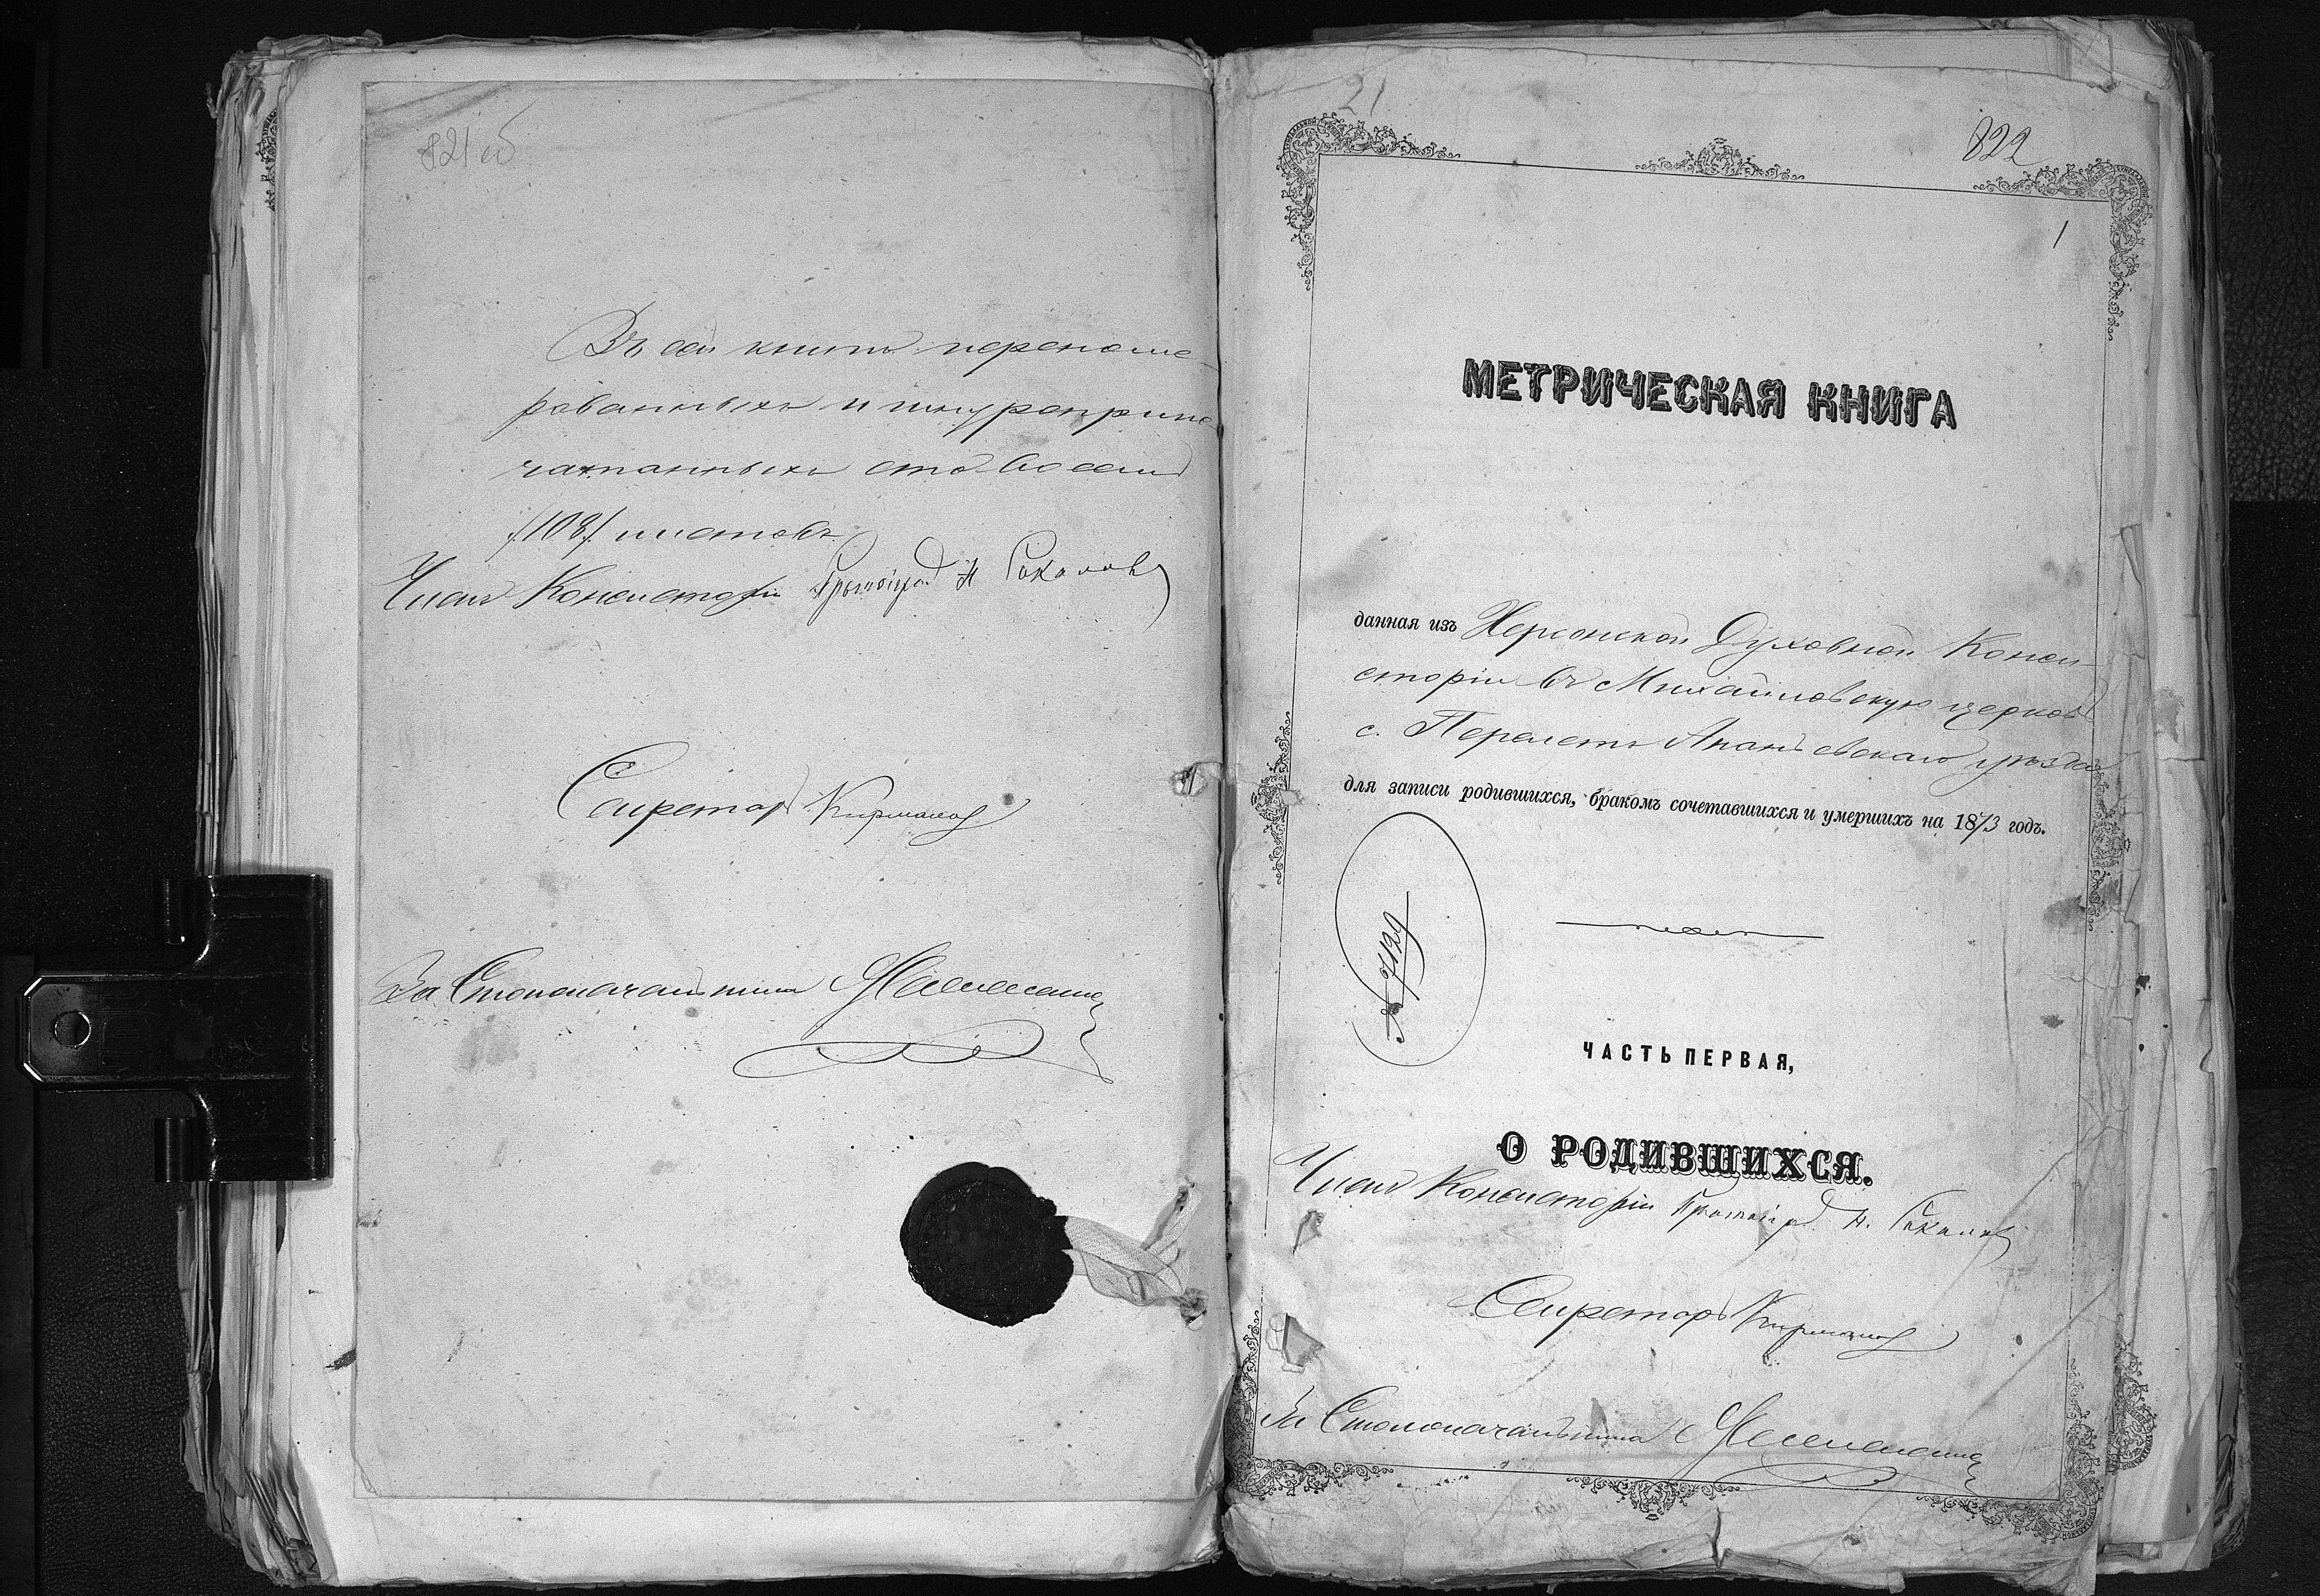 821 об
Въ сей книгѣ перенуме-
рованныхъ и шнуроприпе
чатанныхъ сто восемь
/108/ листовъ
Членъ Консисторіи Протоіерей Н Соколовъ
Секретарь
За Столоначальника
21
822
1
МЕТРИЧЕСКАЯ КНИГА
данная изъ Херсонской Духовной Конси-
сторіи въ Михайловскую церковь
с. Перелетъ Ананьевскаго уѣзда
для записи родившихся, бракомъ сочетавшихся и умершихъ на 1873 годъ.
№ 7129
ЧАСТЬ ПЕРВАЯ,
О РОДИВШИХСЯ.
Членъ Консисторіи Протоіерей Н. Соколовъ
Секретарь
За Столоначальника